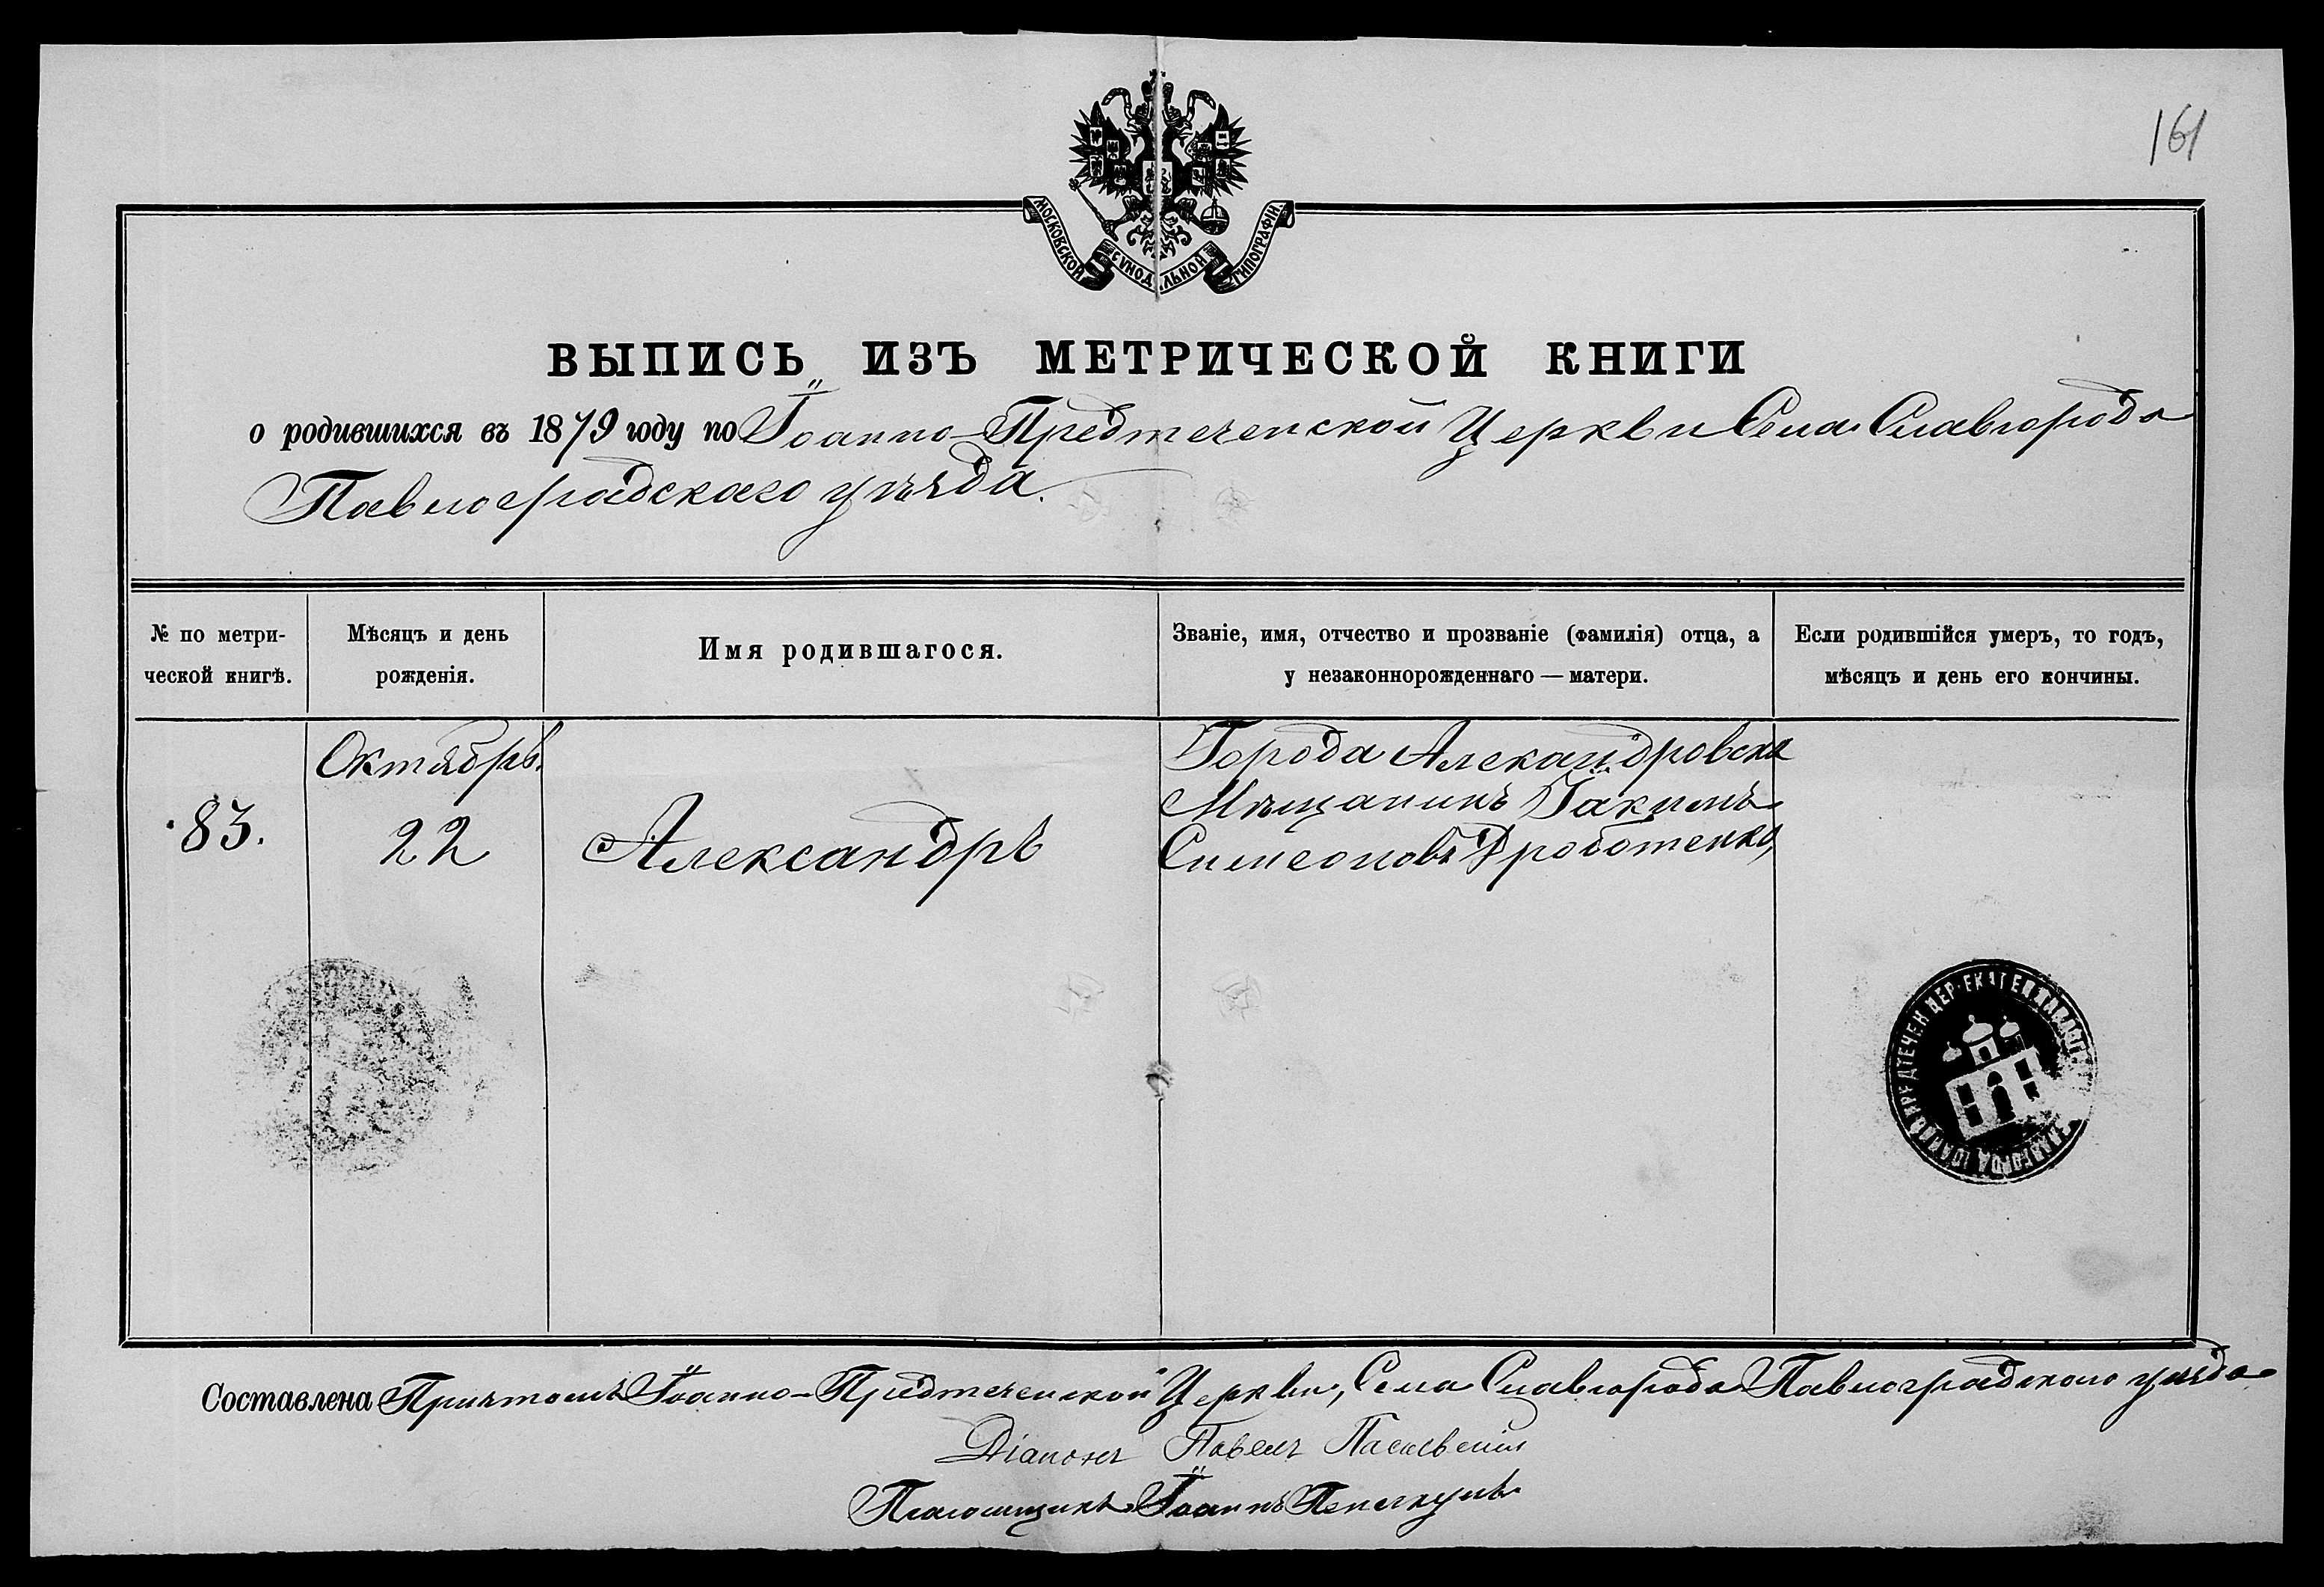 161
МОСКОВСКОЙ СѴНОДАЛЬНОЙ ТИПОГРАФІИ
ВЫПИСЬ ИЗЪ МЕТРИЧЕСКОЙ КНИГИ
о родившихся въ 1879 году по Іоанно-Предтеченской Церкви Села Славгорода
Павлоградскаго уѣзда.
№ по метри-
ческой книгѣ.
Мѣсяцъ и день
рожденія.
Имя родившагося.
Званіе, имя, отчество и прозваніе (фамилія) отца, а
у незаконнорожденнаго — матери.
Если родившійся умеръ, то годъ,
мѣсяцъ и день его кончины.
83.
Октябрь.
22
Александръ
Города Александровска
Мѣщанинъ Іакимъ
Симеоновъ Дроботенко,
Составлена Причтомъ Іоанно-Предтеченской Церкви, Села Славгорода Павлоградскаго уѣзда
Діаконъ Павелъ
Псаломщикъ Іоаннъ